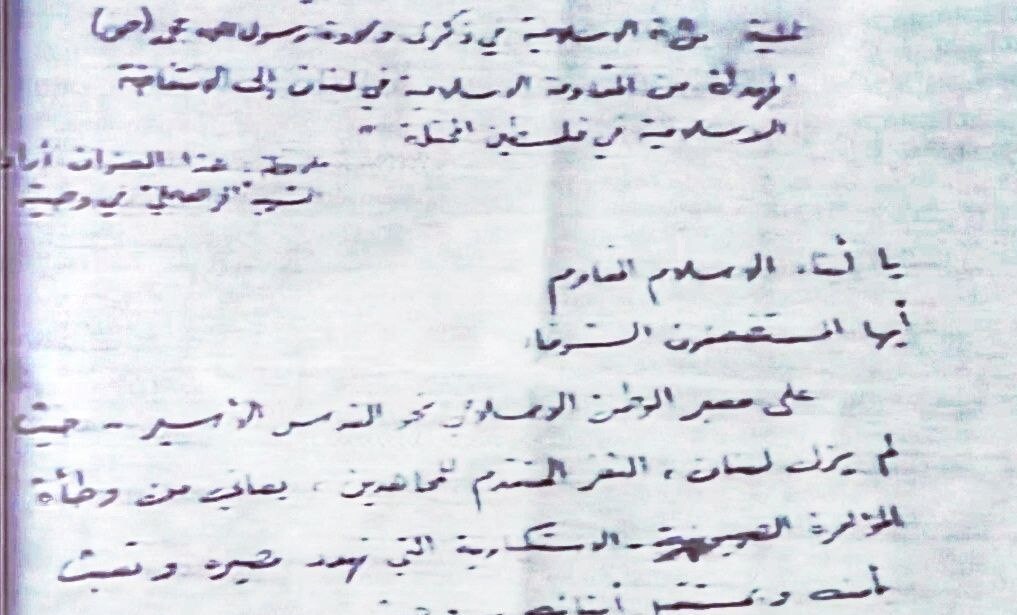 عملية الاسلامية في ذكرى ولادة رسول الله محمد (ص)
المهداة من المقاومة الاسلامية في لبنان إلى الانتفاضة
الاسلامية في فلسطين المحتلة"
ملاحظة: هذا العنوان أراده
الشهيد في وصيته
يا أبناء الاسلام المقاوم
أيها المستضعفون الشرفاء
على معبر الوطن الاسلامي نحو القدس الأسير - حيث
لم يزل لبنان، الثغر المتقدم للمجاهدين، يعاني من وطأة
المؤامرة الاستكبارية التي تهدد مصيره وتعبث
بأمنه ومستقبل أبنائه